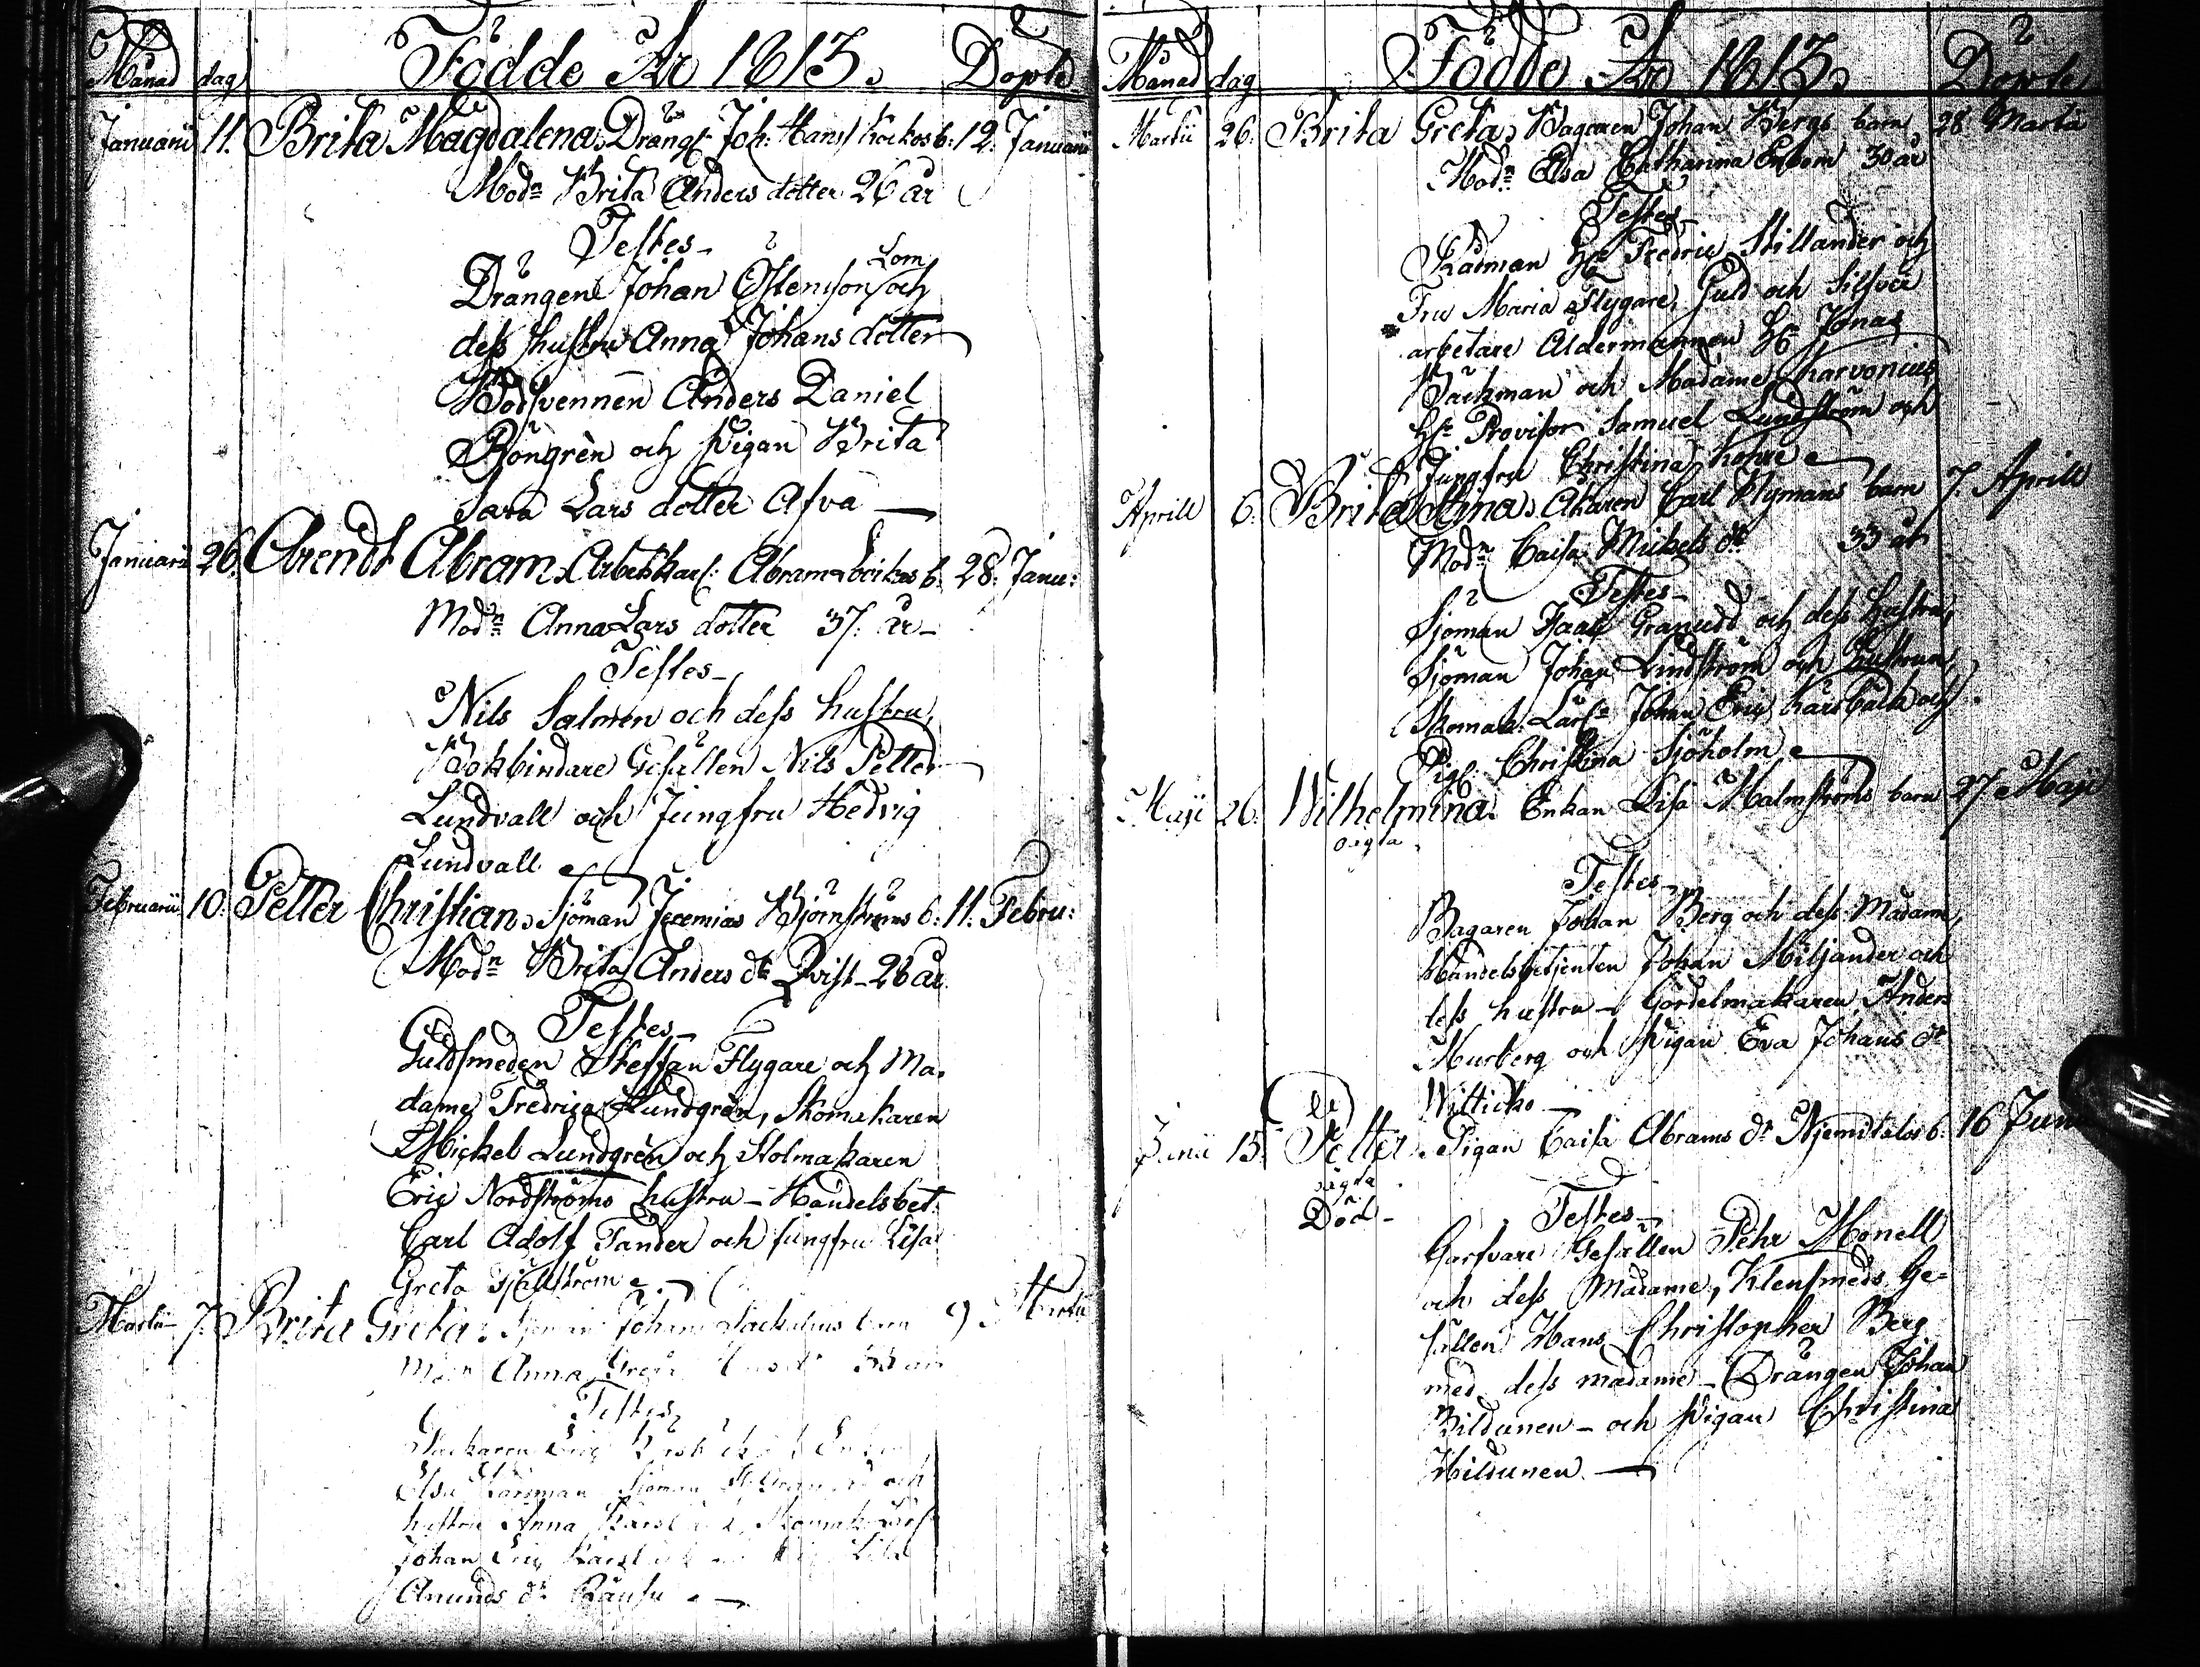 Månad dag Födde År 1813. Döpte
Januarii 11. Brita Magdalena, Dräng: Joh: Hans Kockos b: 12. Januarii
Modn Brita Anders dotter 26 år
Testes
Lom
Drängen Johan Östenson och
dess hustru Anna Johans dotter
Bodsvennen Anders Daniel
Röngrèn och Pigan Brita
Sara Lars dotter Afva
Januarii 26. Arendt Abram, Arbetskarl: Abram b: 28. Janu:
Modn Anna Lars dotter 37. år
Testes
Nils Salmén och dess hustru,
Bokbindare Gesällen Nils Petter
Lundvall och Jungfru Hedvig
Lundvall
Februarii 10. Petter Christian, Sjöman Jeremias Björnströms b: 11. Febru:
Modn Brita Anders dr Qvist 26 år
Testes
Guldsmeden Steffan Flygare och Ma-
dame Fredrica Lundgrén, Skomakaren
Mickel Lundgrén och Stolmakaren
Eric Nordströms hustru - Handelsbet:
Carl Adolf Tander och Jungfru Lisa
Greta Sjöström
Martii 7. Brita Greta, Sjöman Johan barn 9 Martii
Modn Anna Greta 33 år
Testes
Eric
Elsa Sjöman och
hustru Anna Skomak: Lärl:
Johan Eric
Amunds dr
Månad dag Födde År 1813. Döpte
Martii 26. Brita Greta, Bagaren Johan Bergs barn 28 Martii
Modn Elsa Catharina Enbom 30 år
Testes
Rådman Hr Fredric Stillander och
Fru Maria Flygare, Guld och Silfver
arbetare Åldermannen Hr Jonas
Backman och Madame Karvonius
Hr Provisor Samuel Lundström och
Jungfru Christina
Aprill 6. Brita Stina, Åkaren Carl Nymans barn 7. Aprill
Modn Caisa Mickels dr 33 år
Testes
Sjöman Isaac Granudd och dess hustru,
Sjöman Johan Lindström och hustrun,
Skomak: Lärl: Johan Eric Karsbäck och
Pig: Christina Sjöholm
Maji 26. Wilhelmina, Enkan Lisa Malmströms barn 27 Maji
oägta
Testes
Bagaren Johan Berg och dess Madame,
Handelsbetjenten Johan Miljander och
dess hustru - Gördelmakaren Anders
Murberg och Pigan Eva Johans dr
Wittick
Junii 15. Petter, Pigan Caisa Abrams dr Njemitalos b: 16 Jun
oägta
Död
Testes
Garfvare Gesällen Pehr Monell
och dess Madame, Klensmeds Ge-
sällen Hans Christopher Berg
med dess madame - Drängen Johan
Hildunen - och Pigan Christina
Hildunen